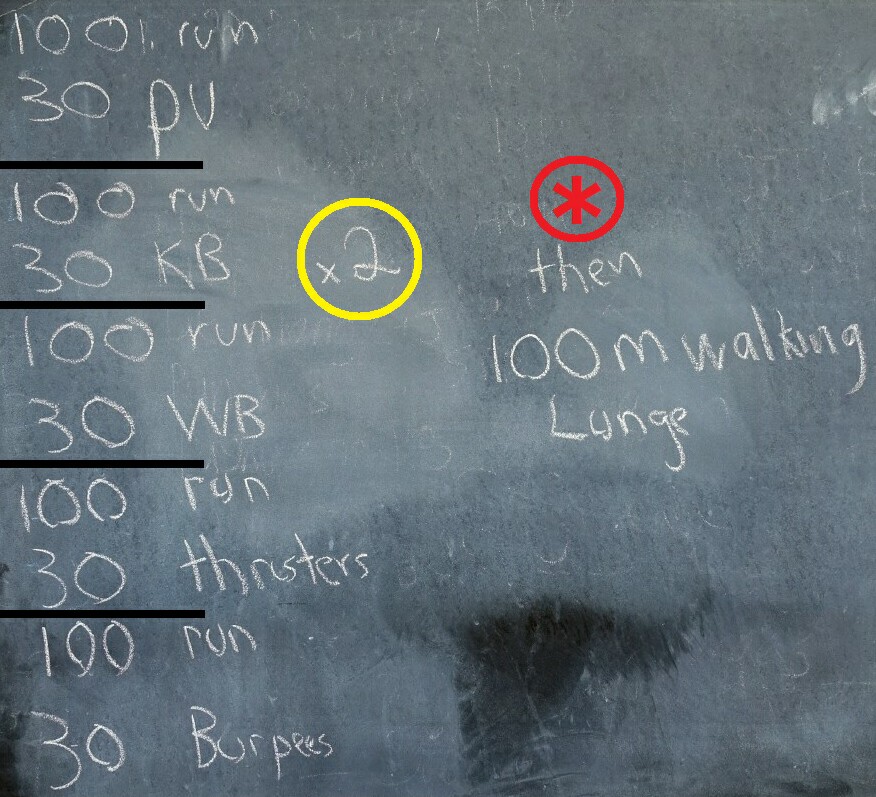 100 run
30 pU
100 run
30 KB
x2
100 run
30 WB
100 run
30 thrusters
100 run
30 Burpees
*
then
100m walking
Lunge